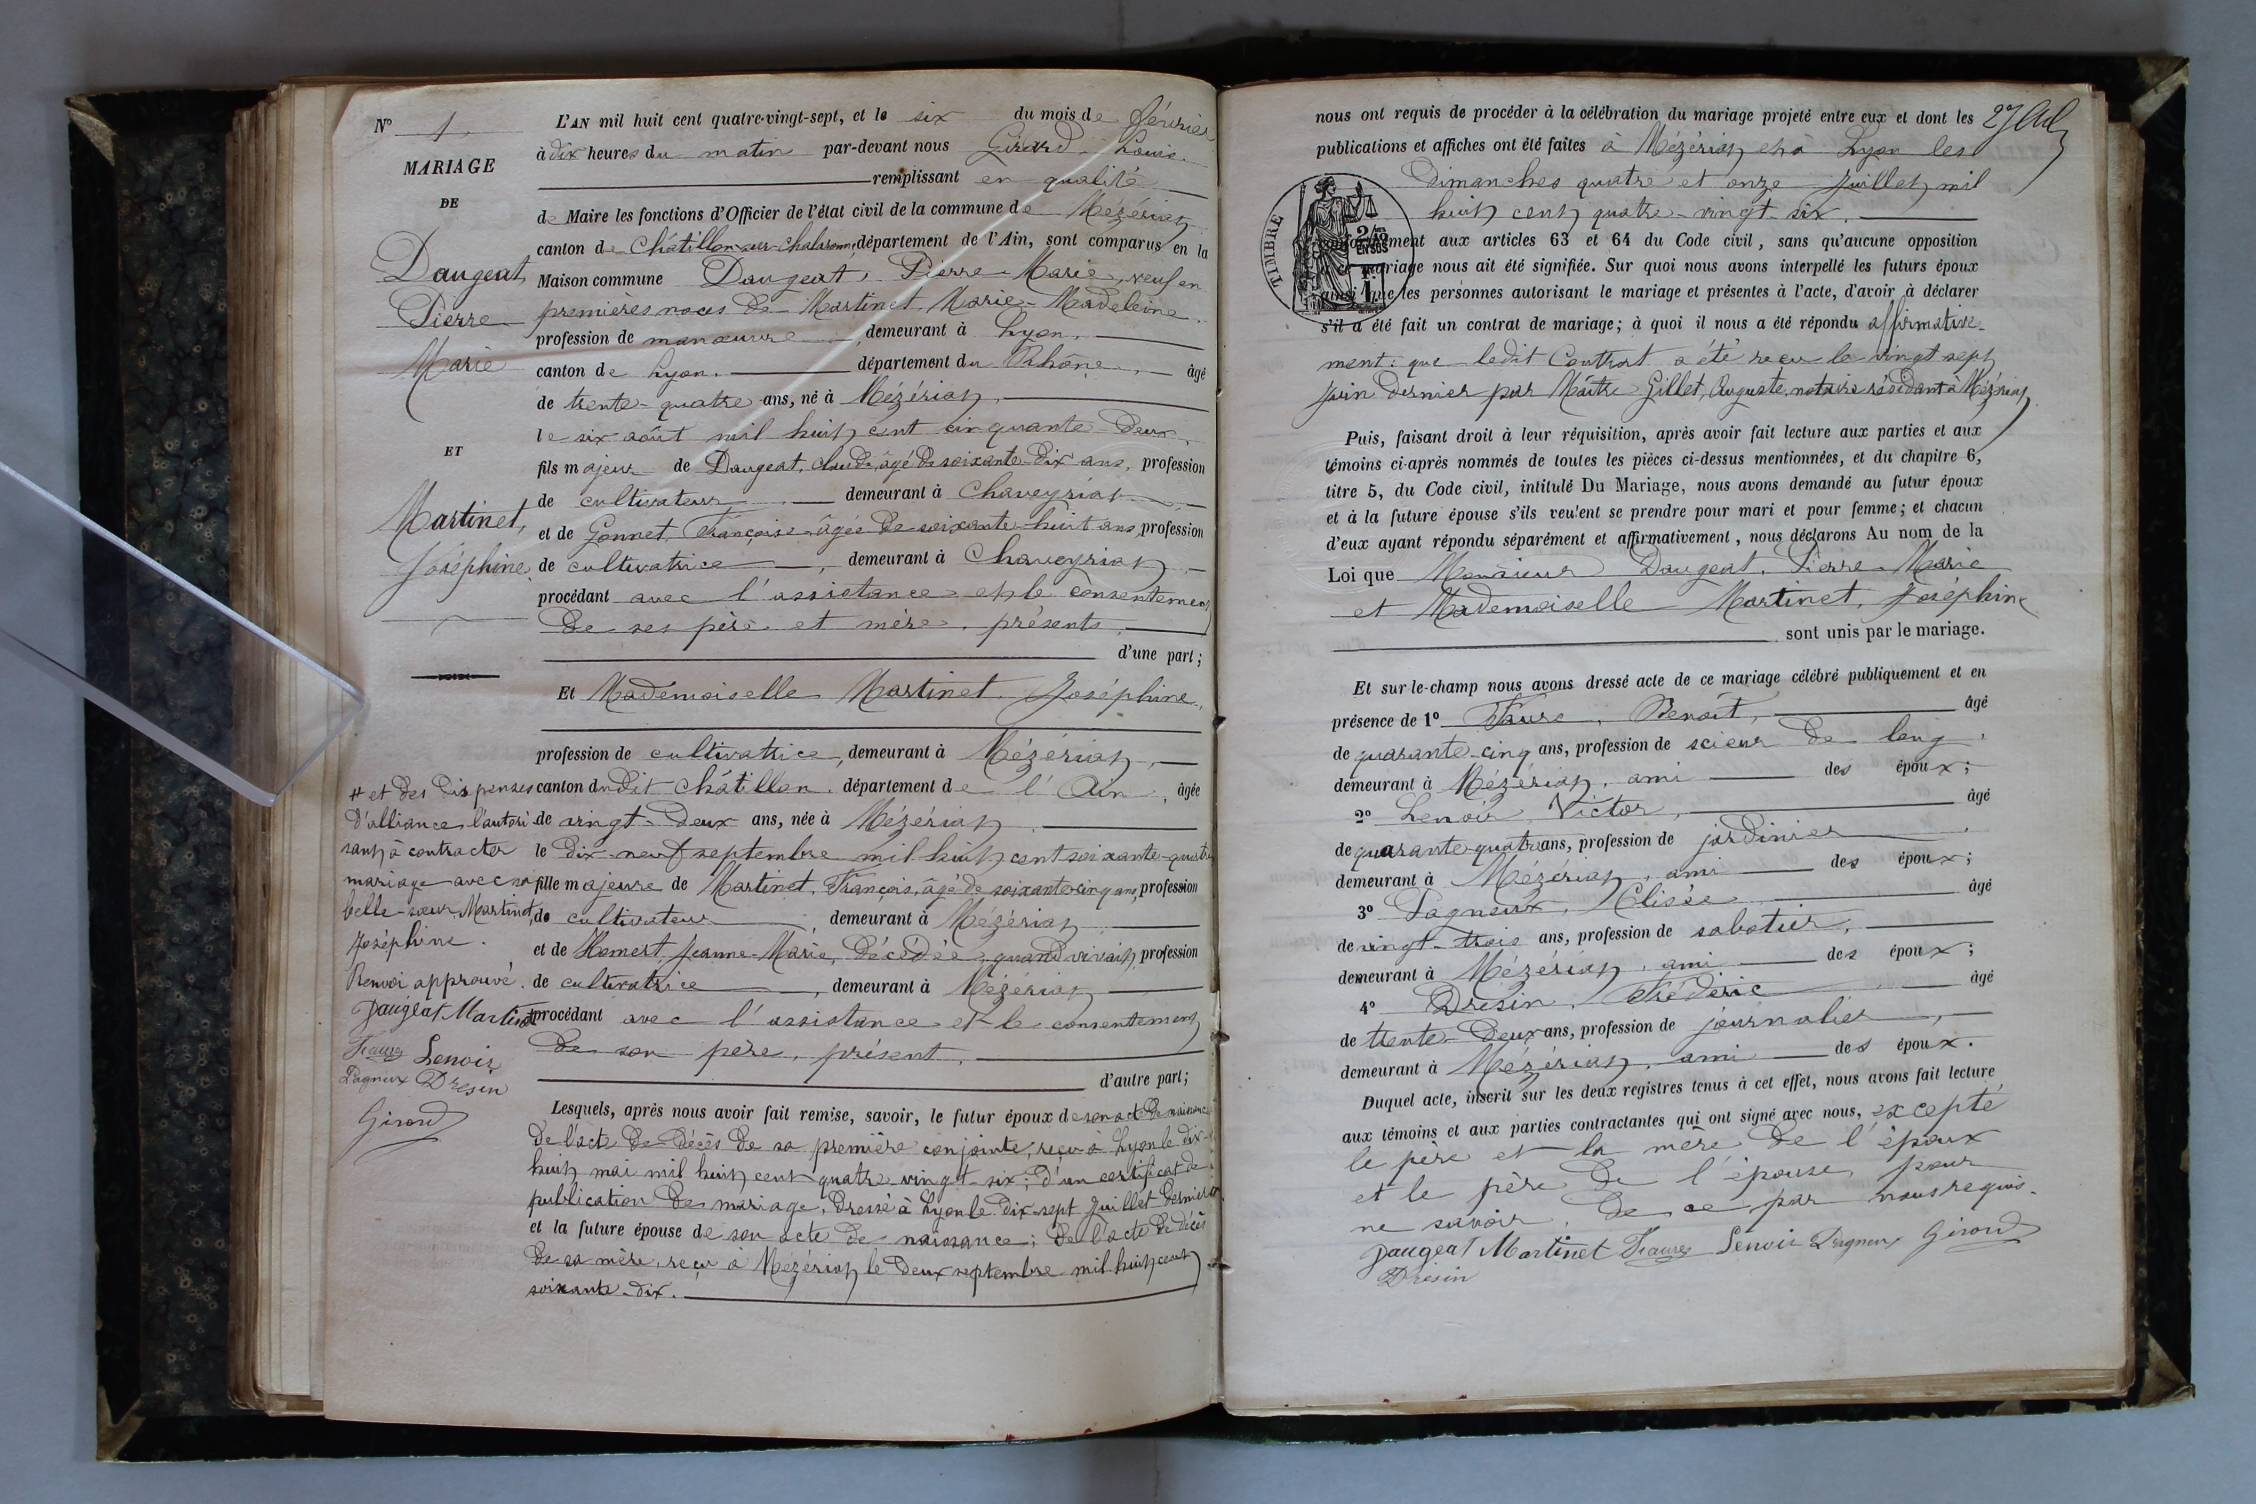 N° 1.
MARIAGE
DE
Daugeat,
Pierre
Marie
ET
Martinet,
Joséphine
# et des dispenses
d'alliance l'autori
sant à contracter
mariage avec sa
belle-sœur Martinet,
Joséphine.
Renvoi approuvé.
Daugeat Martinet
Faure Lenoir
Pagneux Dresin
Girard
L'AN mil huit cent quatre-vingt-sept, et le six du mois de février
à dix heures du matin par-devant nous Girard Louis
remplissant en qualité
de Maire les fonctions d'Officier de l'état civil de la commune de Mézériat
canton de Châtillon-sur-Chalaronne, département de l'Ain, sont comparus en la
Maison commune Daugeat, Pierre-Marie, veuf en
premières noces de Martinet Marie-Madeleine.
profession de manœuvre, demeurant à Lyon,
canton de Lyon. département du Rhône, âgé
de trente-quatre ans, né à Mézériat,
le six août mil huit cent cinquante deux,
fils majeur de Daugeat, Claude, âgé de soixante-dix ans, profession
de cultivateur, demeurant à Chaveyriat
et de Gonnet, Françoise âgée de soixante-huit ans, profession
de cultivatrice, demeurant à Chaveyriat
procédant avec l'assistance et le consentement
de ses père et mère, présents
d'une part;
Et Mademoiselle Martinet Joséphine,
profession de cultivatrice, demeurant à Mézériat,
canton dudit Châtillon, département de l'Ain, âgée
de vingt-deux ans, née à Mézériat
le dix-neuf septembre mil huit cent soixante-quatre
fille majeure de Martinet, François, âgé de soixante-cinq ans, profession
de cultivateur demeurant à Mézériat
et de Homert, Jeanne-Marie, décédée, quand vivait, profession
de cultivatrice, demeurant à Mézériat
procédant avec l'assistance et le consentement
de son père, présent,
d'autre part;
Lesquels, après nous avoir fait remise, savoir, le futur époux de son acte de naissance
de l'acte de décès de sa première conjointe, reçu à Lyon le dix-
huit mai mil huit cent quatre vingt-six; d'un certificat de
publication de mariage, dressé à Lyon le dix-sept Juillet dernier
et la future épouse de son acte de naissance; de l'acte de décès
de sa mère, reçu à Mézériat le deux septembre mil huit cent
soixante-dix.
nous ont requis de procéder à la célébration du mariage projeté entre eux et dont les
publications et affiches ont été faites à Mézériat et à Lyon les
dimanches quatre et onze Juillet mil
huit cent quatre-vingt-six.
TIMBRE
2/10es EN SUS
conformément aux articles 63 et 64 du Code civil, sans qu'aucune opposition
à ce mariage nous ait été signifiée. Sur quoi nous avons interpellé les futurs époux
ainsi que les personnes autorisant le mariage et présentes à l'acte, d'avoir à déclarer
s'il a été fait un contrat de mariage; à quoi il nous a été répondu affirmative-
ment: que ledit Contrat a été reçu le vingt sept
Juin dernier par Maître Gillet, Auguste, notaire résidant à Mézériat
Puis, faisant droit à leur réquisition, après avoir fait lecture aux parties et aux
témoins ci-après nommés de toutes les pièces ci-dessus mentionnées, et du chapitre 6,
titre 5, du Code civil, intitulé Du Mariage, nous avons demandé au futur époux
et à la future épouse s'ils veulent se prendre pour mari et pour femme; et chacun
d'eux ayant répondu séparément et affirmativement, nous déclarons Au nom de la
Loi que Monsieur Daugeat, Pierre-Marie
et Mademoiselle Martinet, Joséphine
sont unis par le mariage.
Et sur-le-champ nous avons dressé acte de ce mariage célébré publiquement et en
présence de 1° Faure, Benoît, âgé
de quarante-cinq ans, profession de scieur de long,
demeurant à Mézériat, ami des époux;
2° Lenoir, Victor, âgé
de quarante-quatre ans, profession de jardinier
demeurant à Mézériat, ami des époux;
3° Pagneux, Elisée âgé
de vingt-trois ans, profession de sabotier,
demeurant à Mézériat, ami des époux;
4° Dresin, Frédéric âgé
de trente-deux ans, profession de journalier,
demeurant à Mézériat, ami des époux.
Duquel acte, inscrit sur les deux registres tenus à cet effet, nous avons fait lecture
aux témoins et aux parties contractantes qui ont signé avec nous, excepté
le père et la mère de l'époux
et le père de l'épouse, pour
ne savoir, de ce par nous requis.
Daugeat Martinet Faure Lenoir Pagneux Girard
Dresin